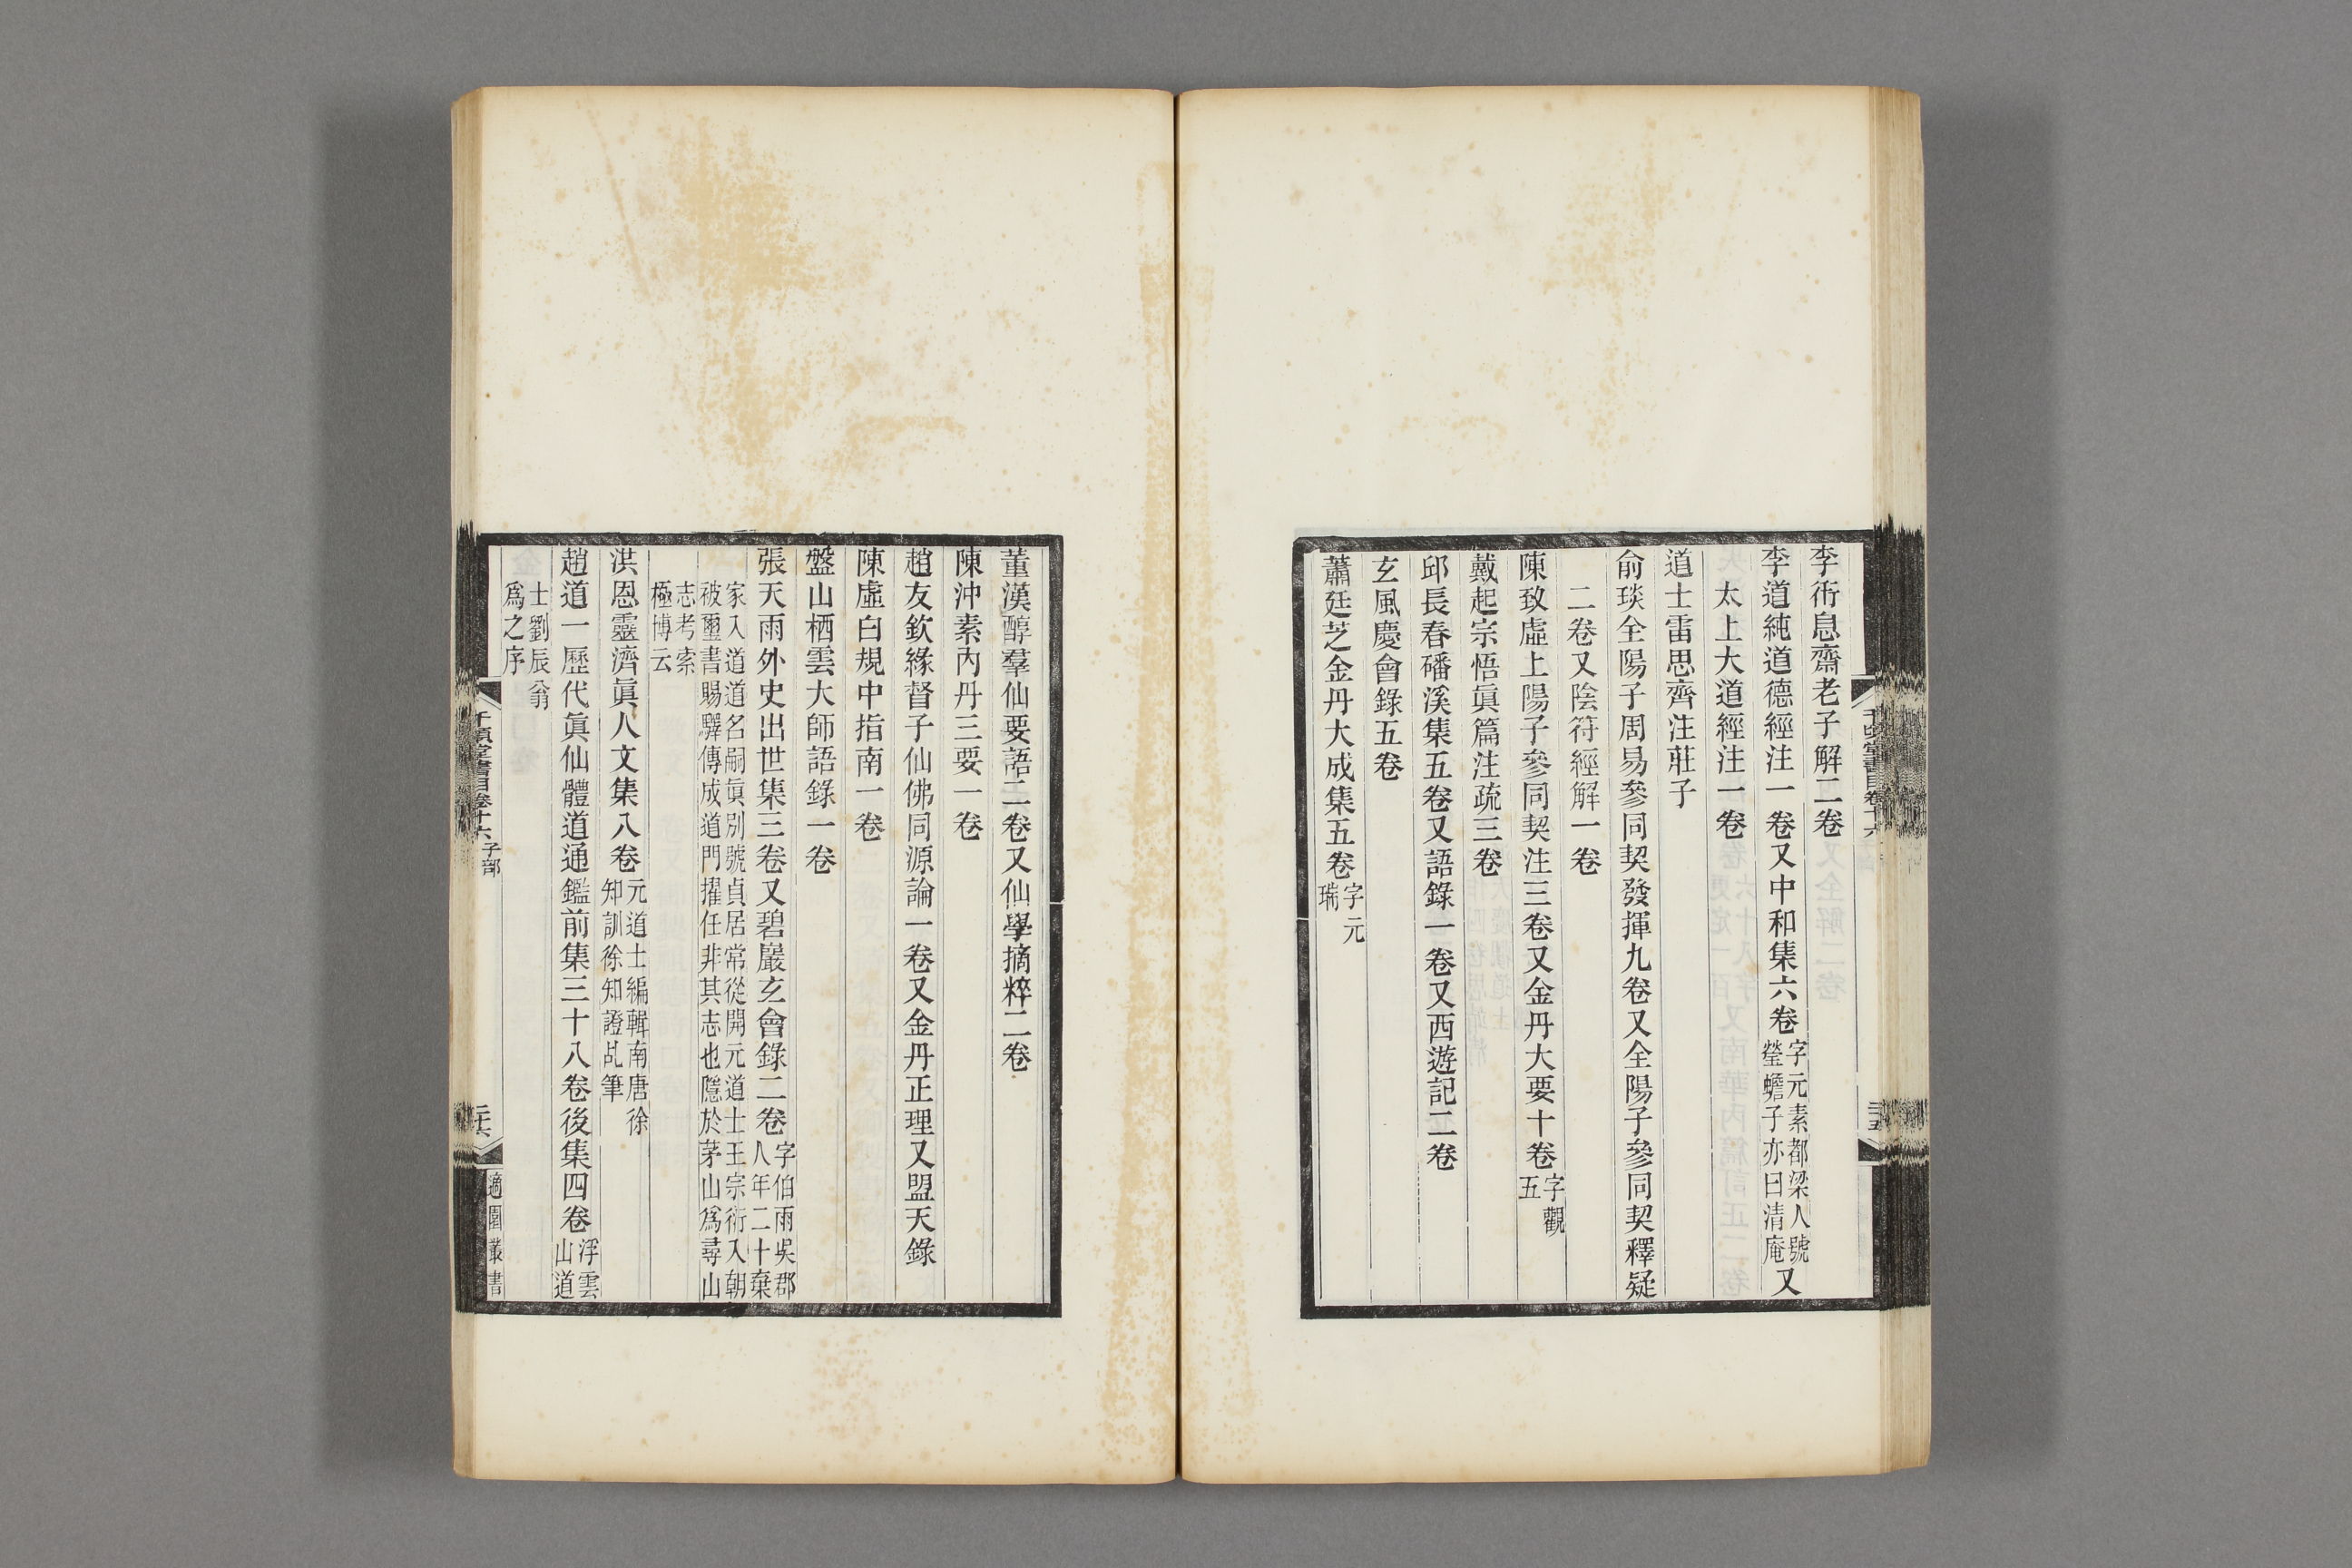 李衎息齋老子解二卷
李道純道德經注一卷又中和集六卷字元素都梁人號瑩蟾子亦曰清庵又
太上大道經注一卷
道士雷思齊注莊子
俞琰全陽子周易參同契發揮九卷又全陽子參同契釋疑
二卷又陰符經解一卷
陳致虛上陽子參同契注三卷又金丹大要十卷字觀五
戴起宗悟眞篇注疏三卷
邱長春磻溪集五卷又語錄一卷又西遊記二卷
玄風慶會錄五卷
蕭廷芝金丹大成集五卷字元瑞
董漢醇羣仙要語二卷又仙學摘粹二卷
陳沖素內丹三要一卷
趙友欽緣督子仙佛同源論一卷又金丹正理又盟天錄
陳虛白規中指南一卷
盤山栖雲大師語錄一卷
張天雨外史出世集三卷又碧巖玄會錄二卷字伯雨吳郡人年二十棄
家入道道名嗣眞別號貞居常從開元道士王宗衍入朝
被璽書賜驛傳成道門擢任非其志也隱於茅山爲尋山
志考索
極博云
洪恩靈濟眞人文集八卷元道士編輯南唐徐知訓徐知證乩筆
趙道一歷代眞仙體道通鑑前集三十八卷後集四卷浮雲山道
士劉辰翁
爲之序
千頃堂書目卷十六 子部
三六
適園叢書